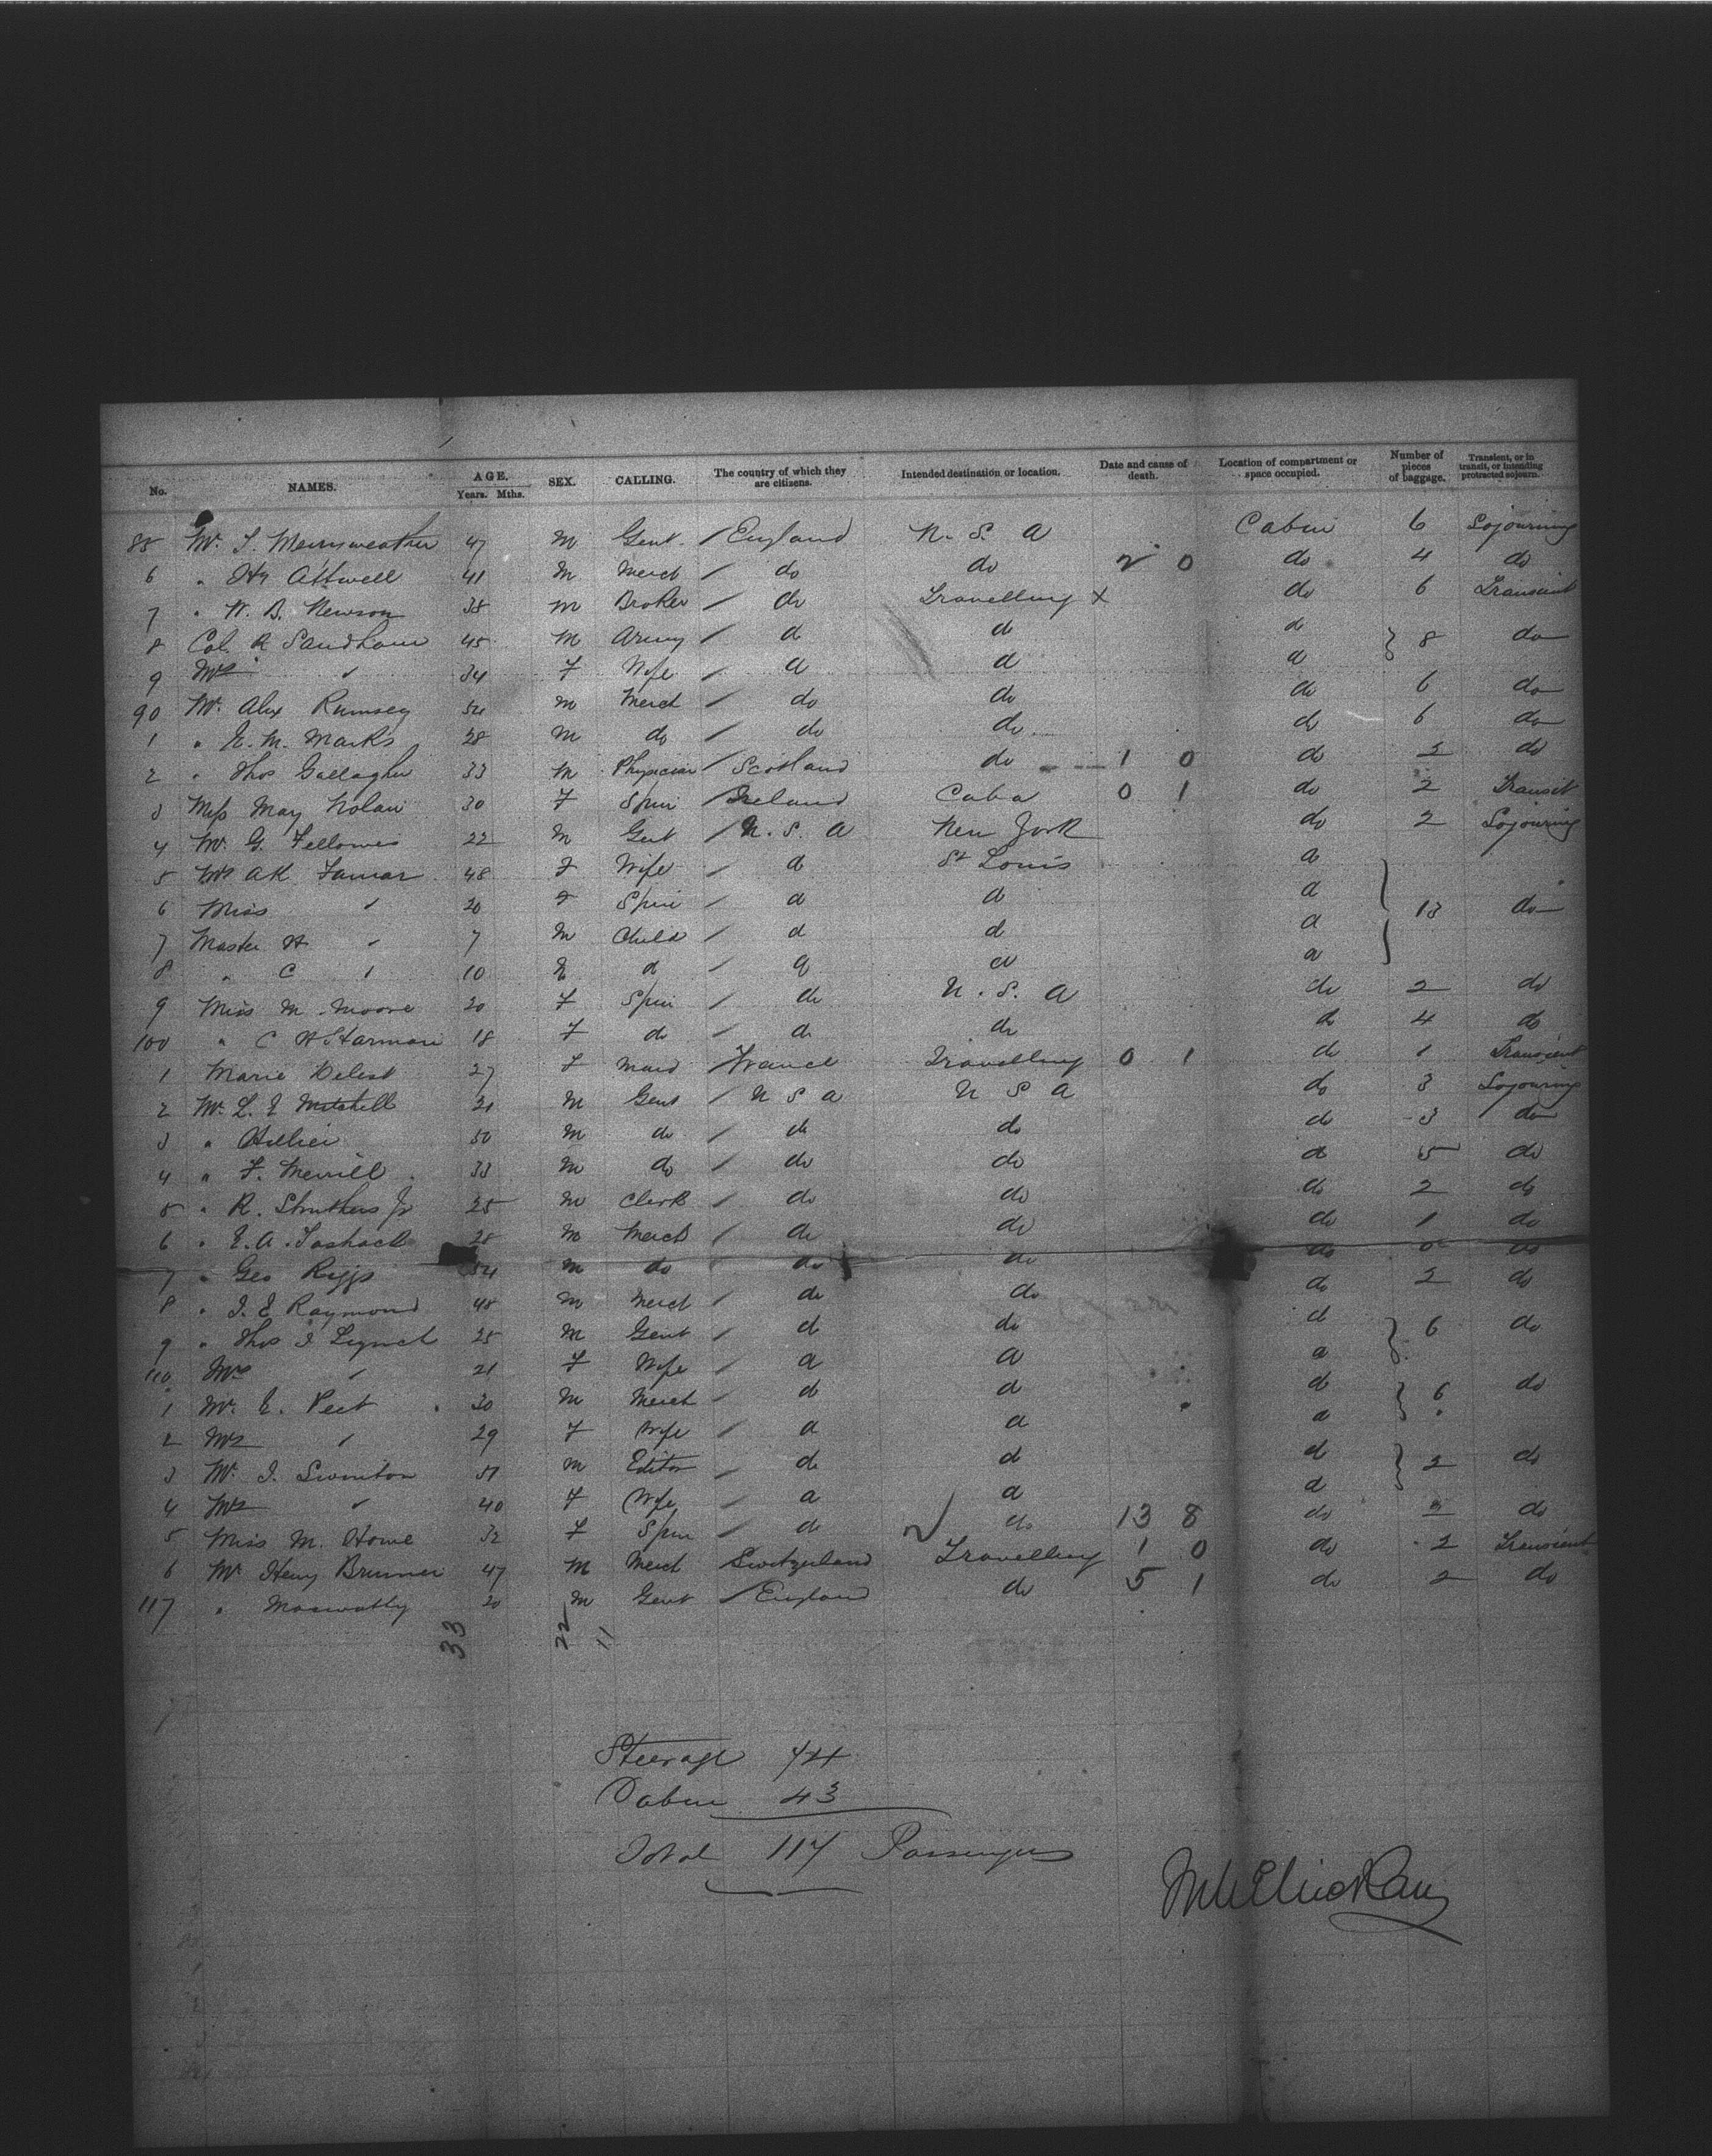 No. NAMES. AGE. Years. Mths. SEX. CALLING. The country of which they are citizens. Intended destination or location. Date and cause of death. Location of compartment or space occupied. Number of pieces of baggage. Transient, or in transit, or intending protracted sojourn.
85 Mr. J. Merryweather 47 M Gent. / England U. S. A Cabin 6 Sojourning
6 " Hy Attwell 41 M Merch / do do 2 0 do 4 do
7 " W. B. Newson 38 M Broker / do Travelling X do 6 Transient
8 Col. R Sandham 45 M Army / d d d } 8 do
9 Mrs " 34 F Wife / d d d
90 Mr. Alex Rumsey 54 M Merch / do do do 6 do
1 " E. M. Marks 28 M do / do do do 6 do
2 " Thos Gallagher 33 M Physician / Scotland do 1 0 do 2 do
3 Miss May Nolan 30 F Spin / Ireland Cuba 0 1 do 2 Transit
4 Mr. G. Fellowes 22 M Gent / U. S. A New York do 2 Sojourning
5 Mrs AK Famar 48 F Wife / d St Louis d }
6 Miss " 20 F Spin / d d d 13 do
7 Master H " 7 M Child / d d d }
8 " C " 10 d / d d d
9 Miss M. Moore 20 F Spin / do U. S. A do 2 do
100 " C H Starman 18 F do / do do do 4 do
1 Marie Delest 27 F Maid / France Travelling 0 1 do 1 Transient
2 Mr. L. E Mitchell 21 M Gent / U S A U S A do 3 Sojourning
3 " Hillier 50 M do / do do do 3 do
4 " F. Merrill 33 M do / do do do 5 do
5 " R. Struthers Jr 25 M Clerk / do do do 2 do
6 " E. A. 28 M Merch / do do do 1 do
7 " Geo Riggs 54 M do do do do do
8 " J. E Raymond 48 M Merch / do do do 2 do
9 " Thos J Lynch 25 M Gent / d do d } 6 do
110 Mrs " 21 F Wife / d d d
1 Mr. E. Peet 30 M Merch / d d d } 6 do
2 Mrs " 29 F Wife / d d d
3 Mr. J. Swinton 51 M Editor / d d d } 2 do
4 Mrs " 40 F Wife / d d d
5 Miss M. Howe 32 F Spin / d do 13 8 do 2 do
6 Mr Henry Brunner 47 M Merch Switzerland Travelling 1 0 do 2 Transient
117 " 20 M Gent / England do 5 1 do 2 do
33 22 11
Steerage 74
Cabin 43
Total 117 Passengers